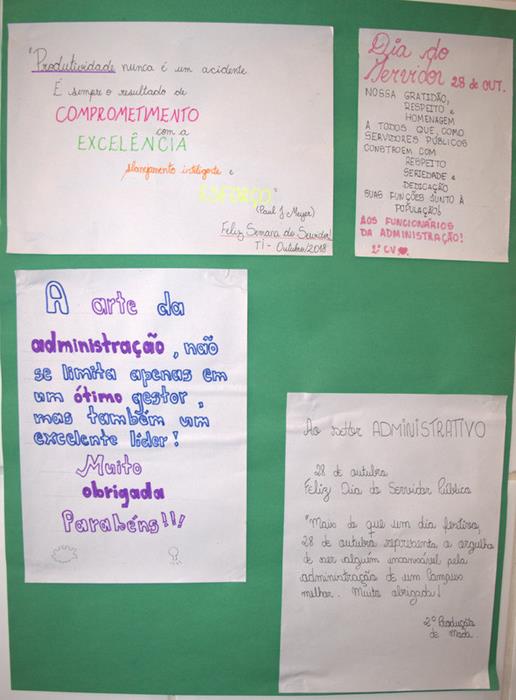 "Produtividade nunca é um acidente
É sempre o resultado de
COMPROMETIMENTO
com a
EXCELÊNCIA
planejamento inteligente e
ESFORÇO"
(Paul J Meyer)
Feliz Semana do Servidor!
TI - Outubro/2018
Dia do
Servidor 28 de OUT.
NOSSA GRATIDÃO,
RESPEITO e
HOMENAGEM
A TODOS QUE, COMO
SERVIDORES PÚBLICOS
CONSTROEM COM
RESPEITO
SERIEDADE e
DEDICAÇÃO
SUAS FUNÇÕES JUNTO À
POPULAÇÃO!
AOS FUNCIONÁRIOS
DA ADMINISTRAÇÃO!
1º CV
A arte da
administração, não
se limita apenas em
um ótimo gestor,
mas também um
excelente líder!
Muito
obrigada
Parabéns!!!
Ao setor ADMINISTRATIVO
28 de outubro
Feliz Dia do Servidor Público
"Mais do que um dia festivo,
28 de outubro representa o orgulho
de ser alguém incansável pela
administração de um Campus
melhor. Muito obrigada!
2º Produção
de Moda.